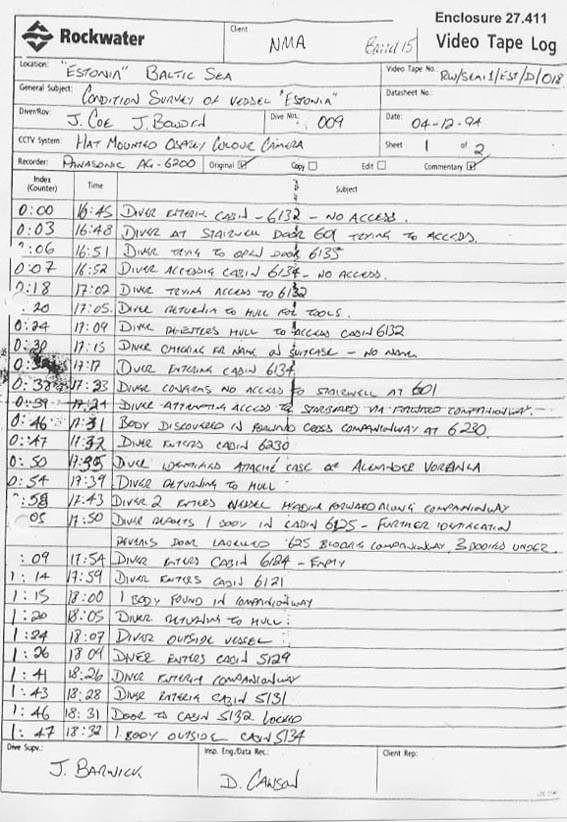 Enclosure 27.411
Rockwater
Client
NMA
Video Tape Log
Location:
"ESTONIA" BALTIC SEA
Video Tape No.:
RW/SEMI/EST/D/018
General Subject:
CONDITION SURVEY OF VESSEL "ESTONIA"
Datasheet No.:
Diver/Rov:
J. COE J. BOWDEN
Dive No.:
009
Date:
04-12-94
CCTV System:
HAT MOUNTED OSPREY COLOUR CAMERA
Sheet 1 of 2
Recorder:
PANASONIC AG-6200
Original
Copy
Edit
Commentary
Index (Counter) Time Subject
0:00 16:45 DIVER ENTERING CABIN - 6132 - NO ACCESS.
0:03 16:48 DIVER AT STAIRWELL DOOR 601 TRYING TO ACCESS.
:06 16:51 DIVER TRYING TO OPEN DOOR 6135
0:07 16:52 DIVER ACCESSING CABIN 6134 - NO ACCESS.
0:18 17:02 DIVER TRYING ACCESS TO 6132
20 17:05 DIVER RETURNING TO HULL FOR TOOLS.
0:24 17:09 DIVER RE-ENTERS HULL TO ACCESS CABIN 6132
0:30 17:15 DIVER CHECKING FOR NAME ON SUITCASE - NO NAME
17:17 DIVER ENTERING CABIN 6134
0:38 17:23 DIVER CONFIRMS NO ACCESS TO STAIRWELL AT 601
0:39 17:24 DIVER ATTEMPTING ACCESS TO STARBOARD VIA FORWARD COMPANIONWAY.
0:46 17:31 BODY DISCOVERED IN FORWARD CROSS COMPANIONWAY AT 6230.
0:47 17:32 DIVER ENTERS CABIN 6230
0:50 17:35 DIVER IDENTIFIES ATTACHÉ CASE OF ALEXANDER
0:54 17:39 DIVER RETURNING TO HULL
:58 17:43 DIVER 2 ENTERS VESSEL HEADING FORWARD ALONG COMPANIONWAY
05 17:50 DIVER REPORTS 1 BODY IN CABIN 6125 - FURTHER IDENTIFICATION
REVEALS DOOR LABELLED '625 BLOCKING COMPANIONWAY, 3 BODIES UNDER.
:09 17:54 DIVER ENTERS CABIN 6124 - EMPTY
1:14 17:59 DIVER ENTERS CABIN 6121
1:15 18:00 1 BODY FOUND IN COMPANIONWAY
1:20 18:05 DIVER RETURNING TO HULL
1:24 18:07 DIVER OUTSIDE VESSEL
1:26 18:09 DIVER ENTERS CABIN 5129
1:41 18:26 DIVER ENTERING COMPANIONWAY
1:43 18:28 DIVER ENTERING CABIN 5131
1:46 18:31 DOOR TO CABIN 5132 LOCKED
1:47 18:32 1 BODY OUTSIDE CABIN 5134
Dive Supv.:
J. BARWICK
Insp. Eng./Data Rec.:
D. CAWSON
Client Rep: